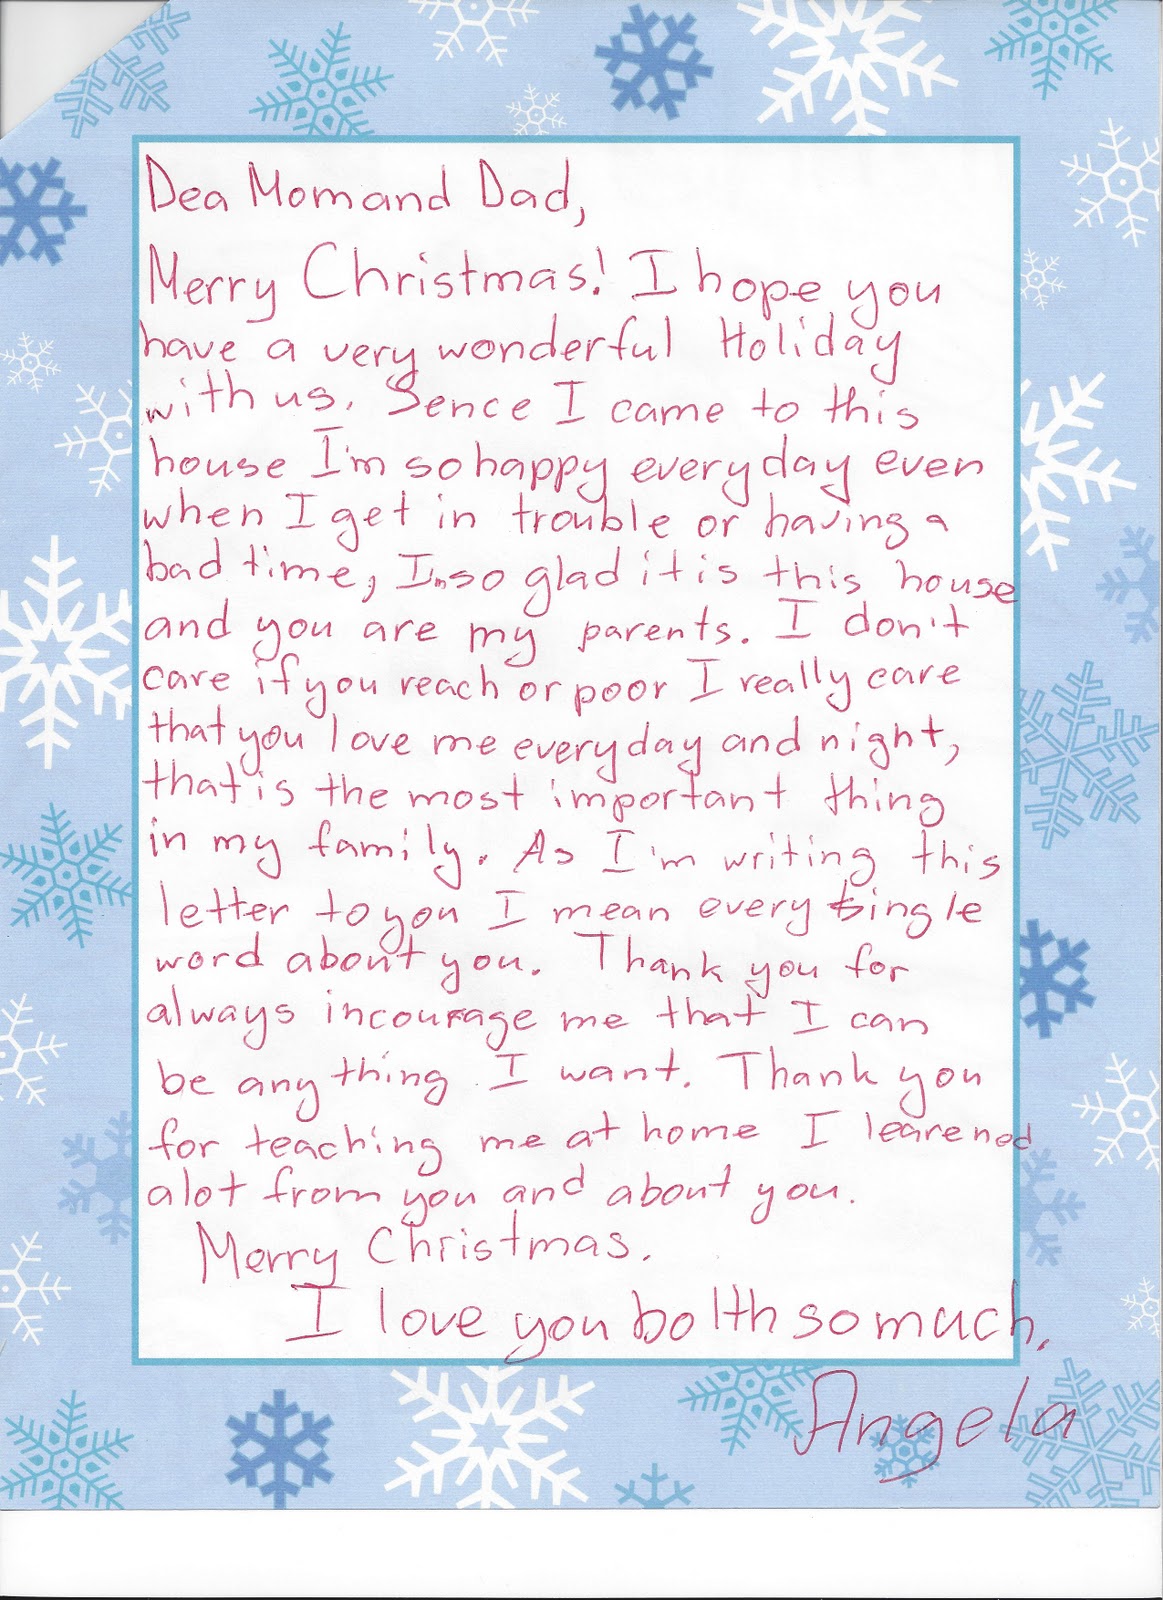 Dea Mom and Dad,
Merry Christmas! I hope you
have a very wonderful Holiday
with us. Sence I came to this
house I'm so happy everyday even
when I get in trouble or having a
bad time, I'm so glad it is this house
and you are my parents. I don't
care if you reach or poor I really care
that you love me everyday and night,
that is the most important thing
in my family. As I'm writing this
letter to you I mean every single
word about you. Thank you for
always incourage me that I can
be anything I want. Thank you
for teaching me at home I learened
alot from you and about you.
Merry Christmas.
I love you bolth so much.
Angela